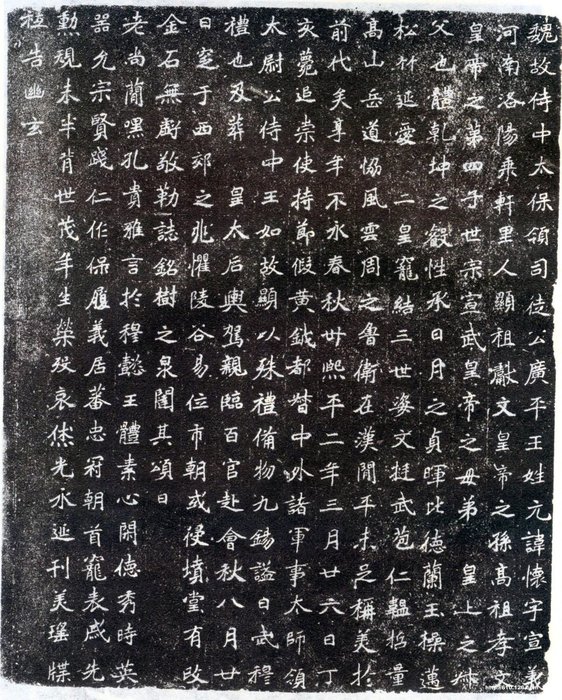 魏故侍中太保領司徒公廣平王姓元諱懷字宣義
河南洛陽乘軒里人顯祖獻文皇帝之孫高祖孝文
皇帝之第四子世宗宣武皇帝之母弟 皇上之叔
父也體乾坤之叡性承日月之貞暉比德蘭玉操邁
松竹延愛二皇寵結三世姿文挺武苞仁韞哲量
高山岳道協風雲周之魯衛在漢間平未足稱美於
前代矣享年不永春秋卅熙平二年三月廿六日丁
亥薨追崇使持節假黃鉞都督中外諸軍事太師領
太尉公侍中王如故顯以殊禮備物九錫謚曰武穆
禮也及葬 皇太后輿駕親臨百官赴會秋八月廿
日窆于西郊之兆懼陵谷易位市朝或侵墳堂有改
金石無虧敬勒誌銘樹之泉闥其頌曰
老尚簡嘿孔貴雅言於穆懿王體素心閑德秀時英
器允宗賢踐仁作保履義居蕃忠冠朝首寵表戚先
勳規未半背世茂年生榮歿哀休光永延刊美瑤牒
祗告幽玄